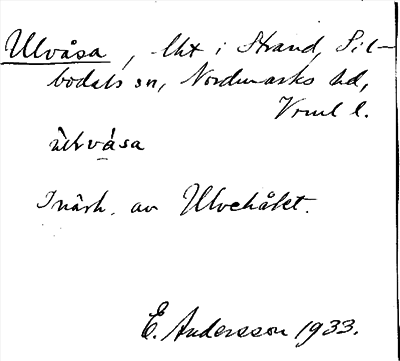 Ulvåsa, lht i Strand, Sil-
bodals sn, Nordmarks hd,
Vrml l.
ùlvása
I närh. av Ulvehålet.
E. Andersson 1933.